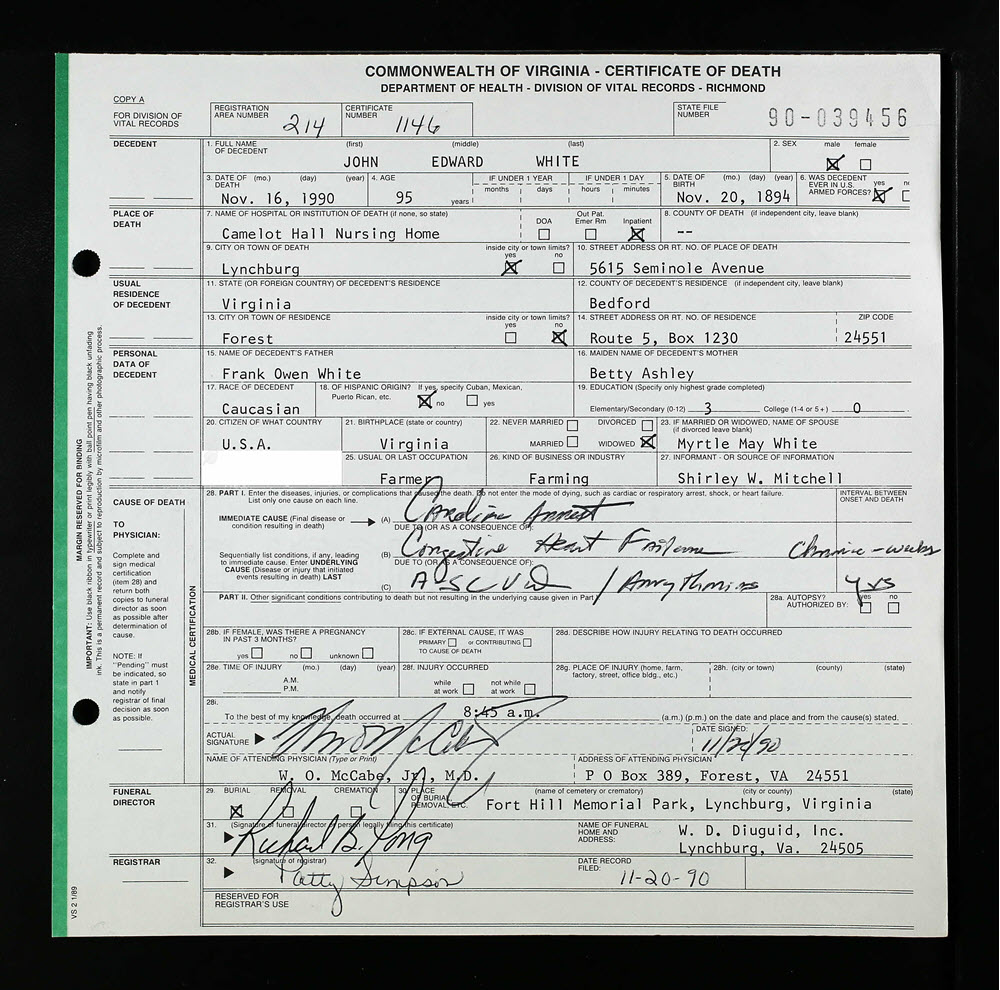 COMMONWEALTH OF VIRGINIA - CERTIFICATE OF DEATH
DEPARTMENT OF HEALTH - DIVISION OF VITAL RECORDS - RICHMOND
COPY A
FOR DIVISION OF VITAL RECORDS
REGISTRATION AREA NUMBER 214
CERTIFICATE NUMBER 1146
STATE FILE NUMBER 90-039456
DECEDENT
1. FULL NAME OF DECEDENT (first) (middle) (last)
JOHN EDWARD WHITE
2. SEX male female
3. DATE OF DEATH (mo.) (day) (year)
Nov. 16, 1990
4. AGE
95 years
IF UNDER 1 YEAR months days
IF UNDER 1 DAY hours minutes
5. DATE OF BIRTH (mo.) (day) (year)
Nov. 20, 1894
6. WAS DECEDENT EVER IN U.S. ARMED FORCES? yes
PLACE OF DEATH
7. NAME OF HOSPITAL OR INSTITUTION OF DEATH (if none, so state)
Camelot Hall Nursing Home
DOA Out Pat. Emer Rm Inpatient
8. COUNTY OF DEATH (if independent city, leave blank)
--
9. CITY OR TOWN OF DEATH
Lynchburg
inside city or town limits? yes no
10. STREET ADDRESS OR RT. NO. OF PLACE OF DEATH
5615 Seminole Avenue
USUAL RESIDENCE OF DECEDENT
11. STATE (OR FOREIGN COUNTRY) OF DECEDENT'S RESIDENCE
Virginia
12. COUNTY OF DECEDENT'S RESIDENCE (if independent city, leave blank)
Bedford
13. CITY OR TOWN OF RESIDENCE
Forest
inside city or town limits? yes no
14. STREET ADDRESS OR RT. NO. OF RESIDENCE
Route 5, Box 1230
ZIP CODE
24551
PERSONAL DATA OF DECEDENT
15. NAME OF DECEDENT'S FATHER
Frank Owen White
16. MAIDEN NAME OF DECEDENT'S MOTHER
Betty Ashley
17. RACE OF DECEDENT
Caucasian
18. OF HISPANIC ORIGIN? If yes, specify Cuban, Mexican, Puerto Rican, etc. no yes
19. EDUCATION (Specify only highest grade completed)
Elementary/Secondary (0-12) 3 College (1-4 or 5+) 0
20. CITIZEN OF WHAT COUNTRY
U.S.A.
21. BIRTHPLACE (state or country)
Virginia
22. NEVER MARRIED DIVORCED
MARRIED WIDOWED
23. IF MARRIED OR WIDOWED, NAME OF SPOUSE (if divorced leave blank)
Myrtle May White
25. USUAL OR LAST OCCUPATION
Farmer
26. KIND OF BUSINESS OR INDUSTRY
Farming
27. INFORMANT - OR SOURCE OF INFORMATION
Shirley W. Mitchell
MARGIN RESERVED FOR BINDING
IMPORTANT: Use black ribbon in typewriter or print legibly with ball point pen having black unfading
ink. This is a permanent record and subject to reproduction by microfilm and other photographic process.
CAUSE OF DEATH
TO PHYSICIAN:
Complete and
sign medical
certification
(item 28) and
return both
copies to funeral
director as soon
as possible after
determination of
cause.
NOTE: If
"Pending" must
be indicated, so
state in part 1
and notify
registrar of final
decision as soon
as possible.
MEDICAL CERTIFICATION
28. PART I. Enter the diseases, injuries, or complications that caused the death. Do not enter the mode of dying, such as cardiac or respiratory arrest, shock, or heart failure.
List only one cause on each line.
INTERVAL BETWEEN ONSET AND DEATH
IMMEDIATE CAUSE (Final disease or condition resulting in death)
(A) Arrest
DUE TO (OR AS A CONSEQUENCE OF):
Sequentially list conditions, if any, leading to immediate cause. Enter UNDERLYING CAUSE (Disease or injury that initiated events resulting in death) LAST
(B) Congestive Heart Failure - weeks
DUE TO (OR AS A CONSEQUENCE OF):
(C) ASCVD / yrs
PART II. Other significant conditions contributing to death but not resulting in the underlying cause given in Part I
28a. AUTOPSY? AUTHORIZED BY: yes no
28b. IF FEMALE, WAS THERE A PREGNANCY IN PAST 3 MONTHS?
yes no unknown
28c. IF EXTERNAL CAUSE, IT WAS
PRIMARY or CONTRIBUTING
TO CAUSE OF DEATH
28d. DESCRIBE HOW INJURY RELATING TO DEATH OCCURRED
28e. TIME OF INJURY (mo.) (day) (year)
A.M.
P.M.
28f. INJURY OCCURRED
while at work not while at work
28g. PLACE OF INJURY (home, farm, factory, street, office bldg., etc.)
28h. (city or town) (county) (state)
28i.
To the best of my knowledge, death occurred at 8:45 a.m. (a.m.) (p.m.) on the date and place and from the cause(s) stated.
ACTUAL SIGNATURE
DATE SIGNED:
11/20/90
NAME OF ATTENDING PHYSICIAN (Type or Print)
W. O. McCabe, Jr., M.D.
ADDRESS OF ATTENDING PHYSICIAN
P O Box 389, Forest, VA 24551
FUNERAL DIRECTOR
29. BURIAL REMOVAL CREMATION
30. PLACE OF BURIAL, REMOVAL, ETC. (name of cemetery or crematory) (city or county) (state)
Fort Hill Memorial Park, Lynchburg, Virginia
31. (Signature of funeral director or person legally filing this certificate)
Richard B.
NAME OF FUNERAL HOME AND ADDRESS:
W. D. Diuguid, Inc.
Lynchburg, Va. 24505
REGISTRAR
32. (signature of registrar)
Patty Simpson
DATE RECORD FILED:
11-20-90
RESERVED FOR REGISTRAR'S USE
VS 2 1/89